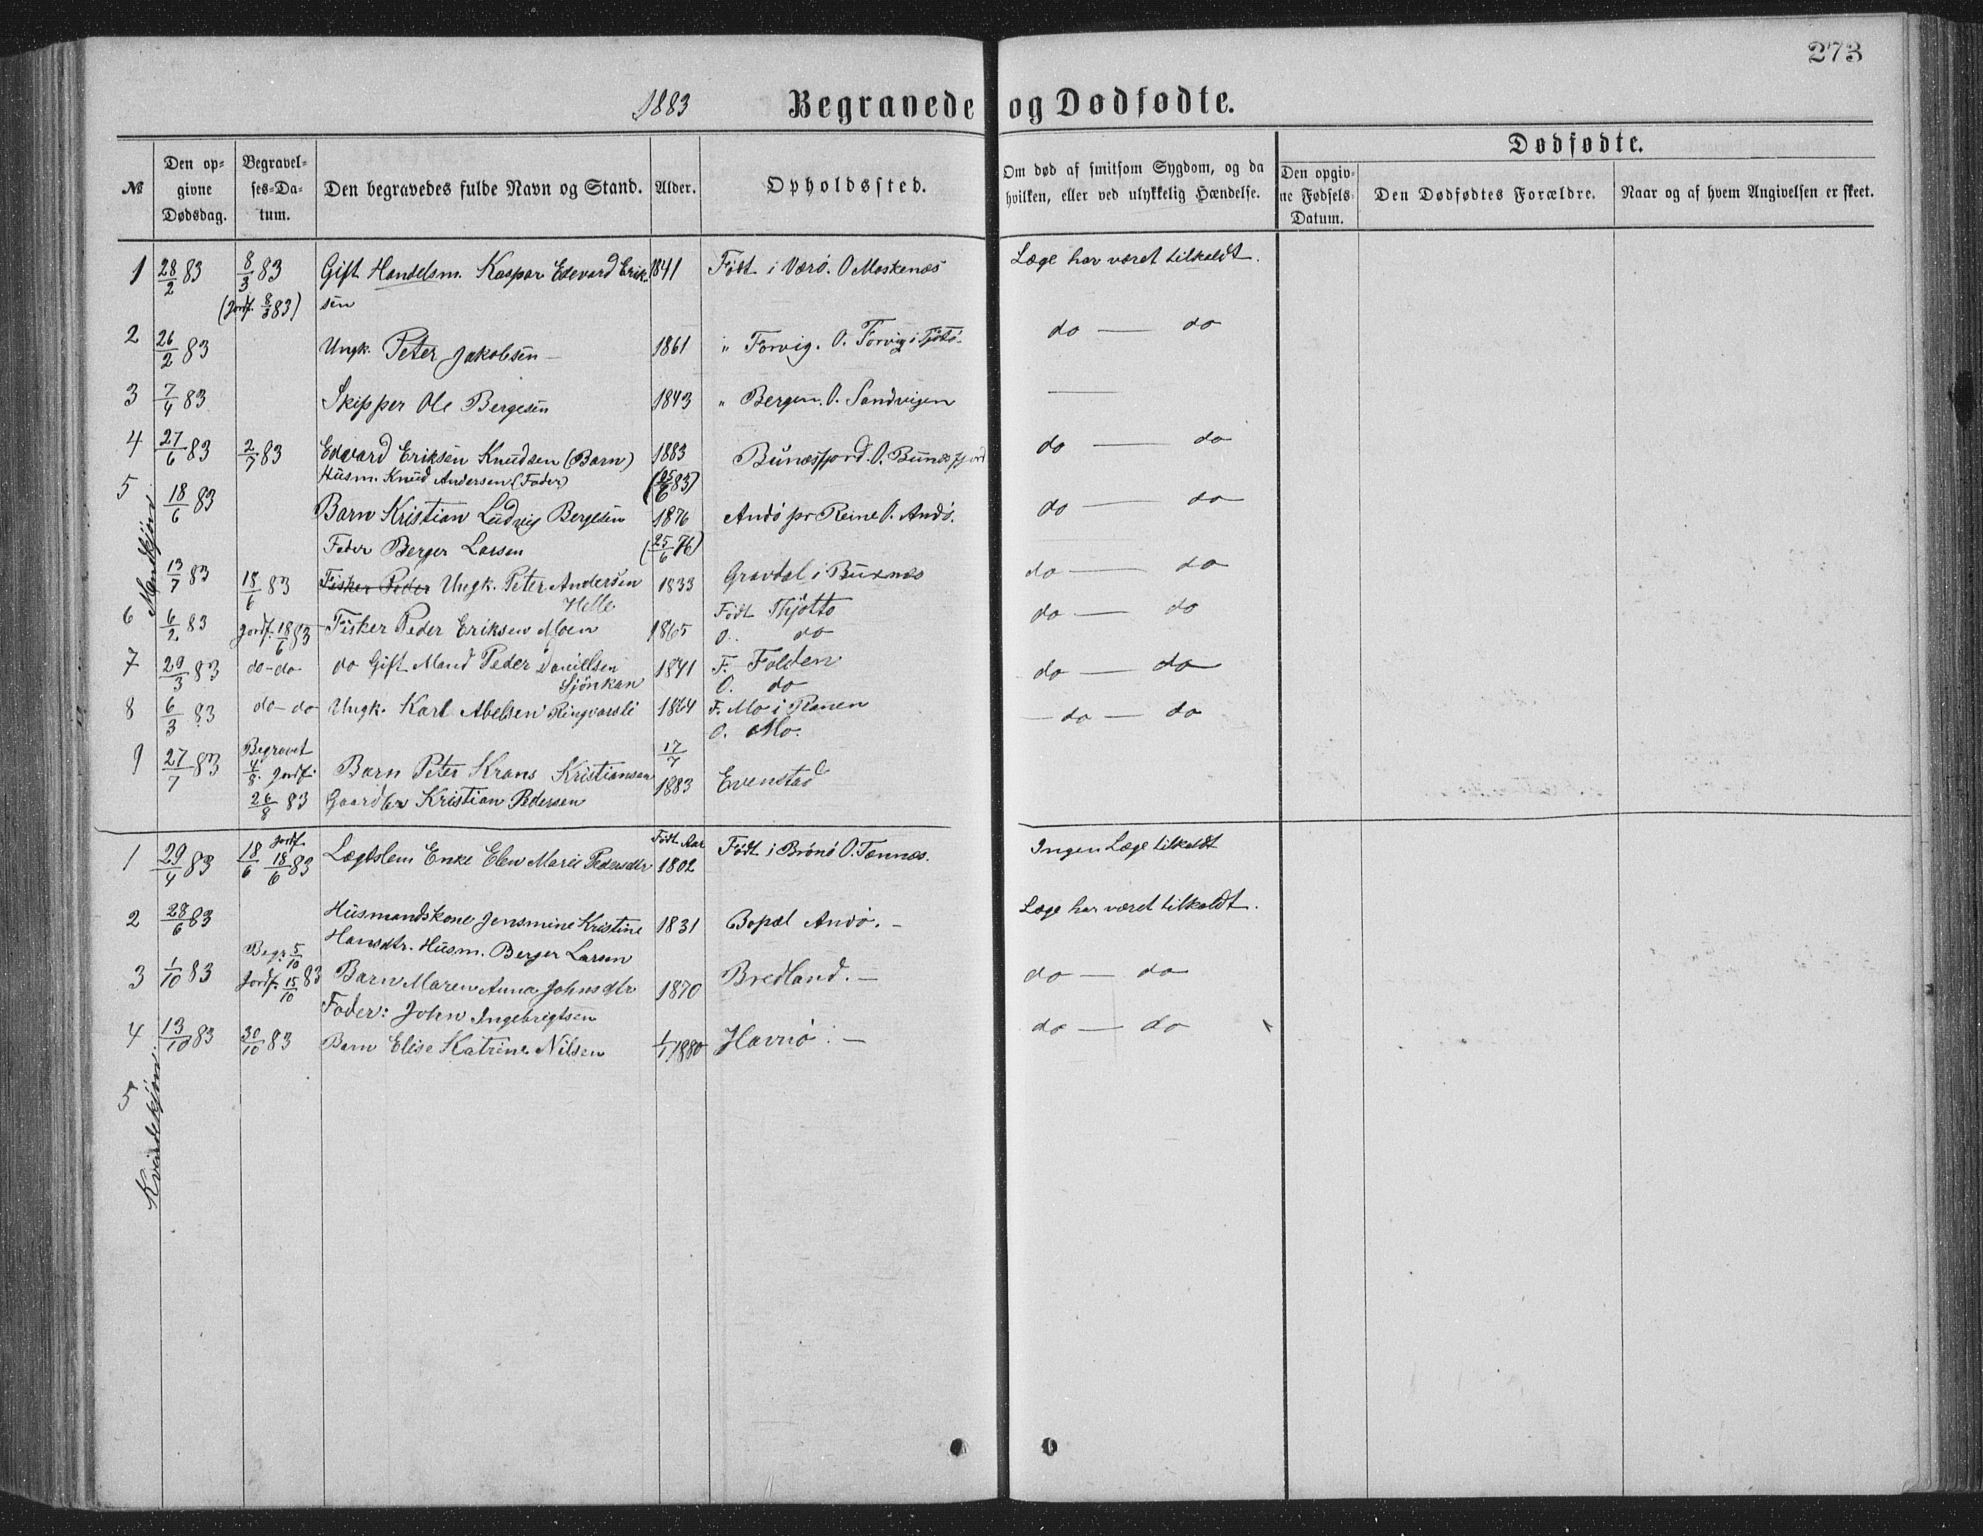 273
1883 Begravede og Dødfødte.
№ Den opgivne Dødsdag. Begravelses-Datum. Den begravedes fulde Navn og Stand. Alder. Opholdssted. Om død af smitsom Sygdom, og da hvilken, eller ved ulykkelig Hændelse. Dødfødte.
Den opgivne Fødsels-Datum. Den Dødfødtes Forældre. Naar og af hvem Angivelsen er skeet.
Mandkjøn
1 28/2 83 8/3 83 Gift Handelsm. Kaspar Edevard Erik- 1841 Født i Værö. O Moskenæs Læge har været tilkaldt.
(Jordf. 8/3 83) sen
2 26/2 83 Ungk. Peter Jakobsen 1861 " Forvig. O. Forvig i Tjöttö. do — do
3 7/4 83 Skipper Ole Bergesen 1843 " Bergen. O. Sandvigen —
4 27/6 83 2/7 83 Edevard Eriksen Knudsen (Barn) 1883 Bunæsfjord. O. Bunæsfjord do — do
Husm. Knud Andersen (Fader) (25/6 83)
5 18/6 83 Barn Kristian Ludvig Bergesen 1876 Andö pr Reine O. Andö. do — do
Fader Berger Larsen (25/6 76)
13/7 83 18/6 83 Fisker Peder Ungk. Peter Andersen 1833 Gravdal i Buxnæs do — do
Helle
6 6/2 83 Jordf. 18/6 83 Fisker Peder Eriksen Moen 1865 Födt Thjotto do — do
O. do
7 29/3 83 do-do do Gift Mand Peder Danielsen 1841 F. Folden do — do
Sjönkan O. do
8 6/3 83 do-do Ungk. Karl Abelsen Ringvarsli 1864 F. Mo i Ranen — do — do
O. Mo.
9 27/7 83 Begravet 4/8. Jordf. Barn Peter Krans Kristiansen 17/7 1883 Evenstad
26/8 83 Gaardbr Kristian Pedersen
Kvindekjøn
1 29/4 83 18/6 Jordf. 18/6 83 Lægtslem Enke Elen Marie Pedersdtr Født Aar 1802 Født i Brönö O. Tennæs. Ingen Læge tilkaldt
2 28/6 83 Husmandskone Jensmine Kristine 1831 Bopæl Andö. — Læge har været tilkaldt.
Hansdtr. Husm. Berger Larsen
3 1/10 83 Begr. 5/10 Jordf. 15/10 83 Barn Maren Anna Johnsdtr 1870 Bredland. — do — do
Fader: John Ingebrigtsen
4 13/10 83 30/10 83 Barn Elise Katrine Nilsen 1/1 1880 Havnö. — do — do
5